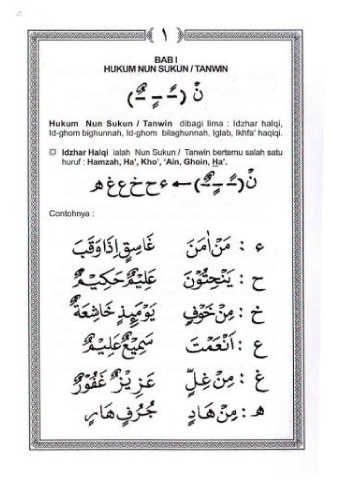 ١
BAB I
HUKUM NUN SUKUN / TANWIN
نْ (ـًـ ـٍـ ـٌـ)
Hukum Nun Sukun / Tanwin dibagi lima : Idzhar halqi,
Id-ghom bighunnah, Id-ghom bilaghunnah, Iglab, Ikhfa' haqiqi.
Idzhar Halqi ialah Nun Sukun / Tanwin bertemu salah satu
huruf : Hamzah, Ha', Kho', 'Ain, Ghoin, Ha'.
نْ (ـًـ ـٍـ ـٌـ) ← ء ح خ ع غ ه
Contohnya :
ء : مَنْ اٰمَنَ غَاسِقٍ اِذَا وَقَبَ
ح : يَنْحِتُوْنَ عَلِيْمٌ حَكِيْمٌ
خ : مِنْ خَوْفٍ يَوْمَئِذٍ خَاشِعَةٌ
ع : اَنْعَمْتَ سَمِيْعٌ عَلِيْمٌ
غ : مِنْ غِلٍّ عَزِيْزٌ غَفُوْرٌ
ه : مِنْ هَادٍ جُرُفٍ هَارٍ